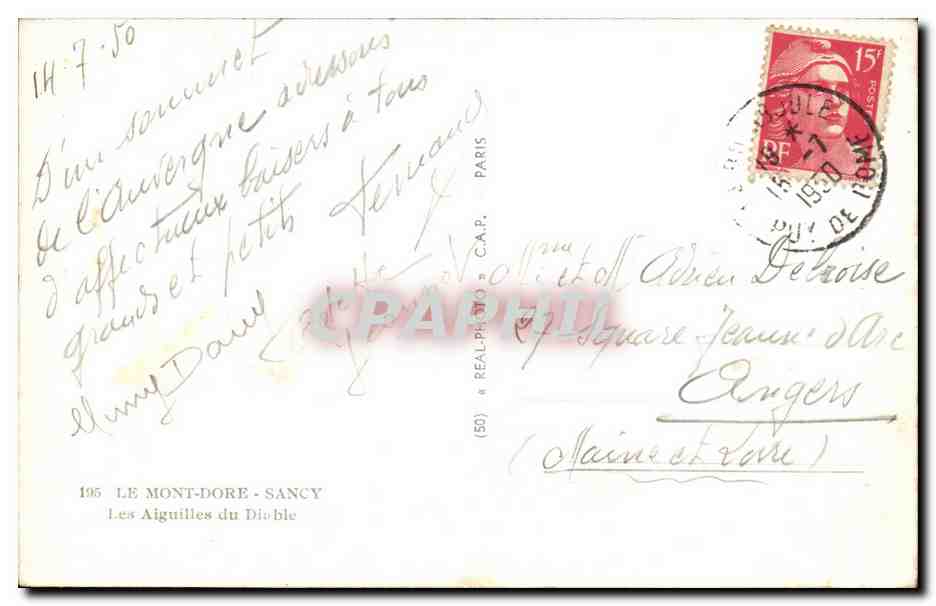 14-7-50
D'un sommet
de l'Auvergne adressons
d'affectueux baisers à tous
grands et petits Fernand
195 LE MONT-DORE - SANCY
Les Aiguilles du Diable
(50) « REAL-PHOTO » C.A.P. PARIS
15F
POSTE
RF
18 *
15 -7
1950
PUY DE DOME
Mme et M Adrien Delroise
square Jeanne d'Arc
Angers
(Maine et Loire)
CPAPHIL